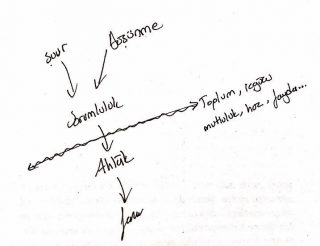 şuur
Düşünme
sorumluluk
Toplum, içgüdü
mutluluk, haz, fayda...
Ahlâk